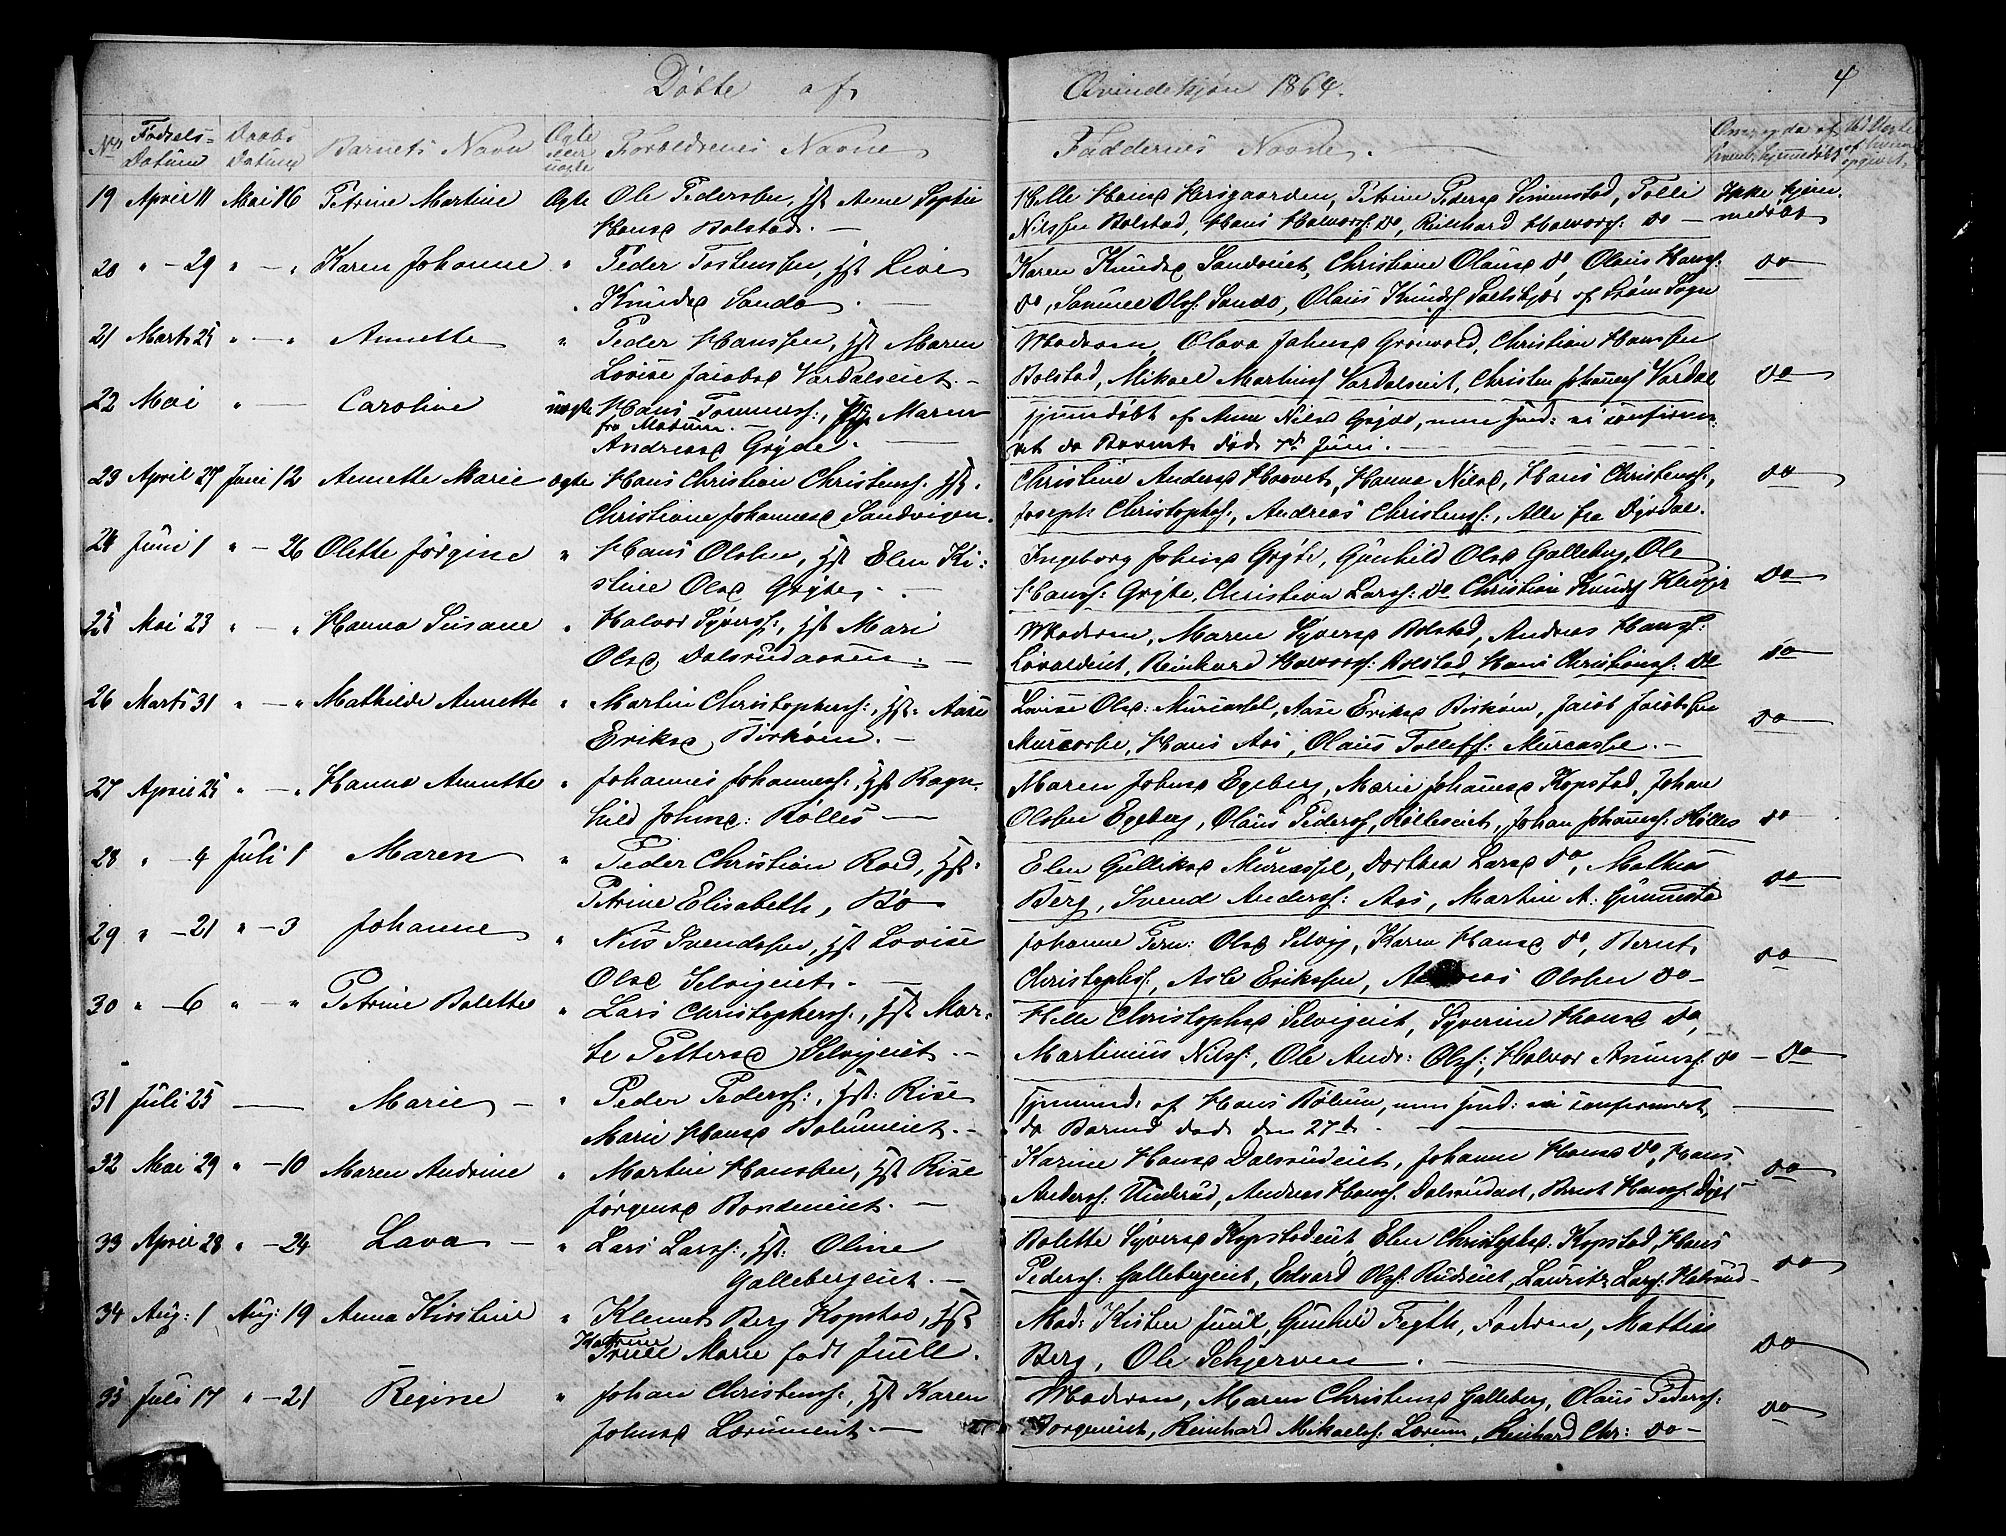 Døbte af
Qvindekjøn 1864.
4
No Fødsels- Datum Daabs Datum Barnets Navn Ægte eller uægte Forældrenes Navne
Faddernes Navne.
19 April 11 Mai 16 Petrine Martine Ægte Ole Pedersen, Hst Anne Sophie
Hansd Bolstad.
Helle Hansd Hersgaarden, Petrine Pedersd Simenstad, Tolli
Nilssen Bolstad, Hans Halvorss: do, Reinhard Halvorss: do
Ikke hjem-
medøbt
20 " - 29 " - " Karen Johanne " Peder Tostenssen, Hst Live
Knudsd Sando.
Karen Knudsd Sandeiet, Christiane Olausd do, Olaus Hanss:
do, Samuel Olss: Sando, Olaus Knudss af Strøm Sogn
do
21 Marts 25 " - " Annette " Peder Hanssen, Hst Maren
Lovise Jacobsd Vardalseiet.
Moderen, Olava Johnsd Grønvold, Christian Hanssen
Bolstad, Mikael Martinss Vardalseiet, Christen Johanness Vardal
do
22 Mai " - Caroline uægte Hans Tommess:, Pig Maren
fra Modum.
Andreasd Grøde.
Hjemmedøbt af Anne Nilsd men ei confirme-
ret da Barnet døde 7de Juni.
23 April 27 Juni 12 Annette Marie ægte Hans Christian Christenss. Hst.
Christiane Johannesd Sandvigen.
Christine Andersd Hanna Nilsd, Hans Christenss:,
Joseph Christophss:, Andreas Christenss:, Alle fra
do
24 Juni 1 " - 26 Olette Jørgine " Hans Olssen, Hst Elen Ki-
stine Olsd Grøte.
Ingeborg Johnsd Grøte, Gunhild Olsd Galleberg, Ole
Hanss: Grøte, Christian Larss: do Christian Knuds
do
25 Mai 23 " - " Hanna Susane " Halvor Syverss:, Hst Mari
Olsd Dalsrudaasen.
Moderen, Maren Syversd Bolstad, Andreas Hanss:
Reinhard Halvorss: Bolstad, Hans Christianss: do
do
26 Marts 31 " - " Mathilde Annette " Martin Christopherss:, Hst: Aase
Eriksd Birkøen.
Lovise Olsd: Murcassel, Aase Eriksd Birkøen, Jacob Jacobssen
Murcasse, Hans Aas, Olaus Tollefss: Murcasse.
do
27 April 25 " - " Hanna Annette " Johannes Johanness: Hst Ragn-
hild Johnsd: Rølles
Maren Johnsd Egeberg, Marie Johannsd Kopstad, Johan
Olssen Egeberg, Olaus Pederss, Rølleseiet, Johan Johanness: Rølles
do
28 " - 4 Juli 1 Maren " Peder Christian Roed, Hst.
Petrine Elisabeth, Bø
Elen Gulliksd Murcassel, Dorthea Larsd do, Mathias
Berg, Svend Anderss: Aas, Martin A:
do
29 " - 21 " - 3 Johanne " Nils Svendssen, Hst Lovise
Olsd Selvigeiet.
Johanne Pern: Olsd Selvig, Karen Hansd do, Bernt
Christophss, Asle Erikssen, Andreas Olssen do
do
30 " - 6 " - " Petrine Bolette " Lars Christopherss, Hst Mar-
te Pettersd Selvigeiet.
Helle Christophsd Selvigeiet, Syverine Hansd do,
Martinius Nilss:, Ole Andr: Olss:, Halvor do
do
31 Juli 25 Marie " Peder Pederss:, Hst: Rise
Marie Hansd
Hjemmed: af Hans men ei confirmeret,
da Barnet døde den 27d.
32 Mai 29 " - 10 Maren Andrine " Martin Hanssen, Hst Rise
Jørgensd Bondeneiet.
Karine Hansd Dalsrudeiet, Johanne Hansd do, Hans
Anderss: Underud, Andreas Hanss: Bernt Hanss:
do
33 April 28 " - 24 Lava " Lars Larss:, Hst: Oline
Gallebergeiet.
Bolette Syversd Kopstadeiet Elen Christophsd: Kopstad, Hans
Pederss: Gallebergeiet, Edvard Olss: Rudseiet, Lauritz Larss:
do
34 Aug: 1 Aug: 19 Anna Kirstine " Klemet Berg Kopstad, Hst
Katrine
Marie født Juell.
Mad: Kisten Juul, Gunhild Fegth, Faderen, Mathias
Berg, Ole Schjerven
do
35 Juli 17 " - 21 Regine " Johan Christenss:, Hst Karen
Johnsd Lørumeiet.
Moderen, Maren Christensd Galleberg, Olaus Pederss:
Borgeneiet, Reinhard Mikaelss: Lørum, Reinhard Chr: do
do